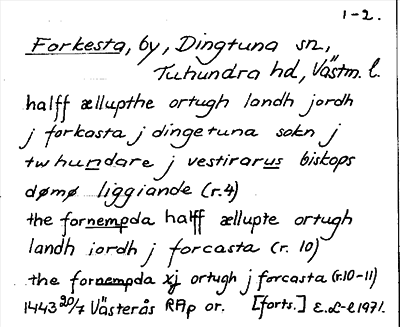 1-2.
Forkesta, by, Dingtuna sn,
Tuhundra hd, Västm. l.
halff ællupthe ortugh landh jordh
j forkasta j dingetuna sokn j
twhundare j vestirarus biskops
dømø liggiande (r.4)
the fornempda halff ællupte ortugh
landh iordh j forcasta (r. 10)
the fornempda xj ortugh j forcasta (r.10-11)
1443 20/7 Västerås RAp or. [forts.] E.L-e 1971.